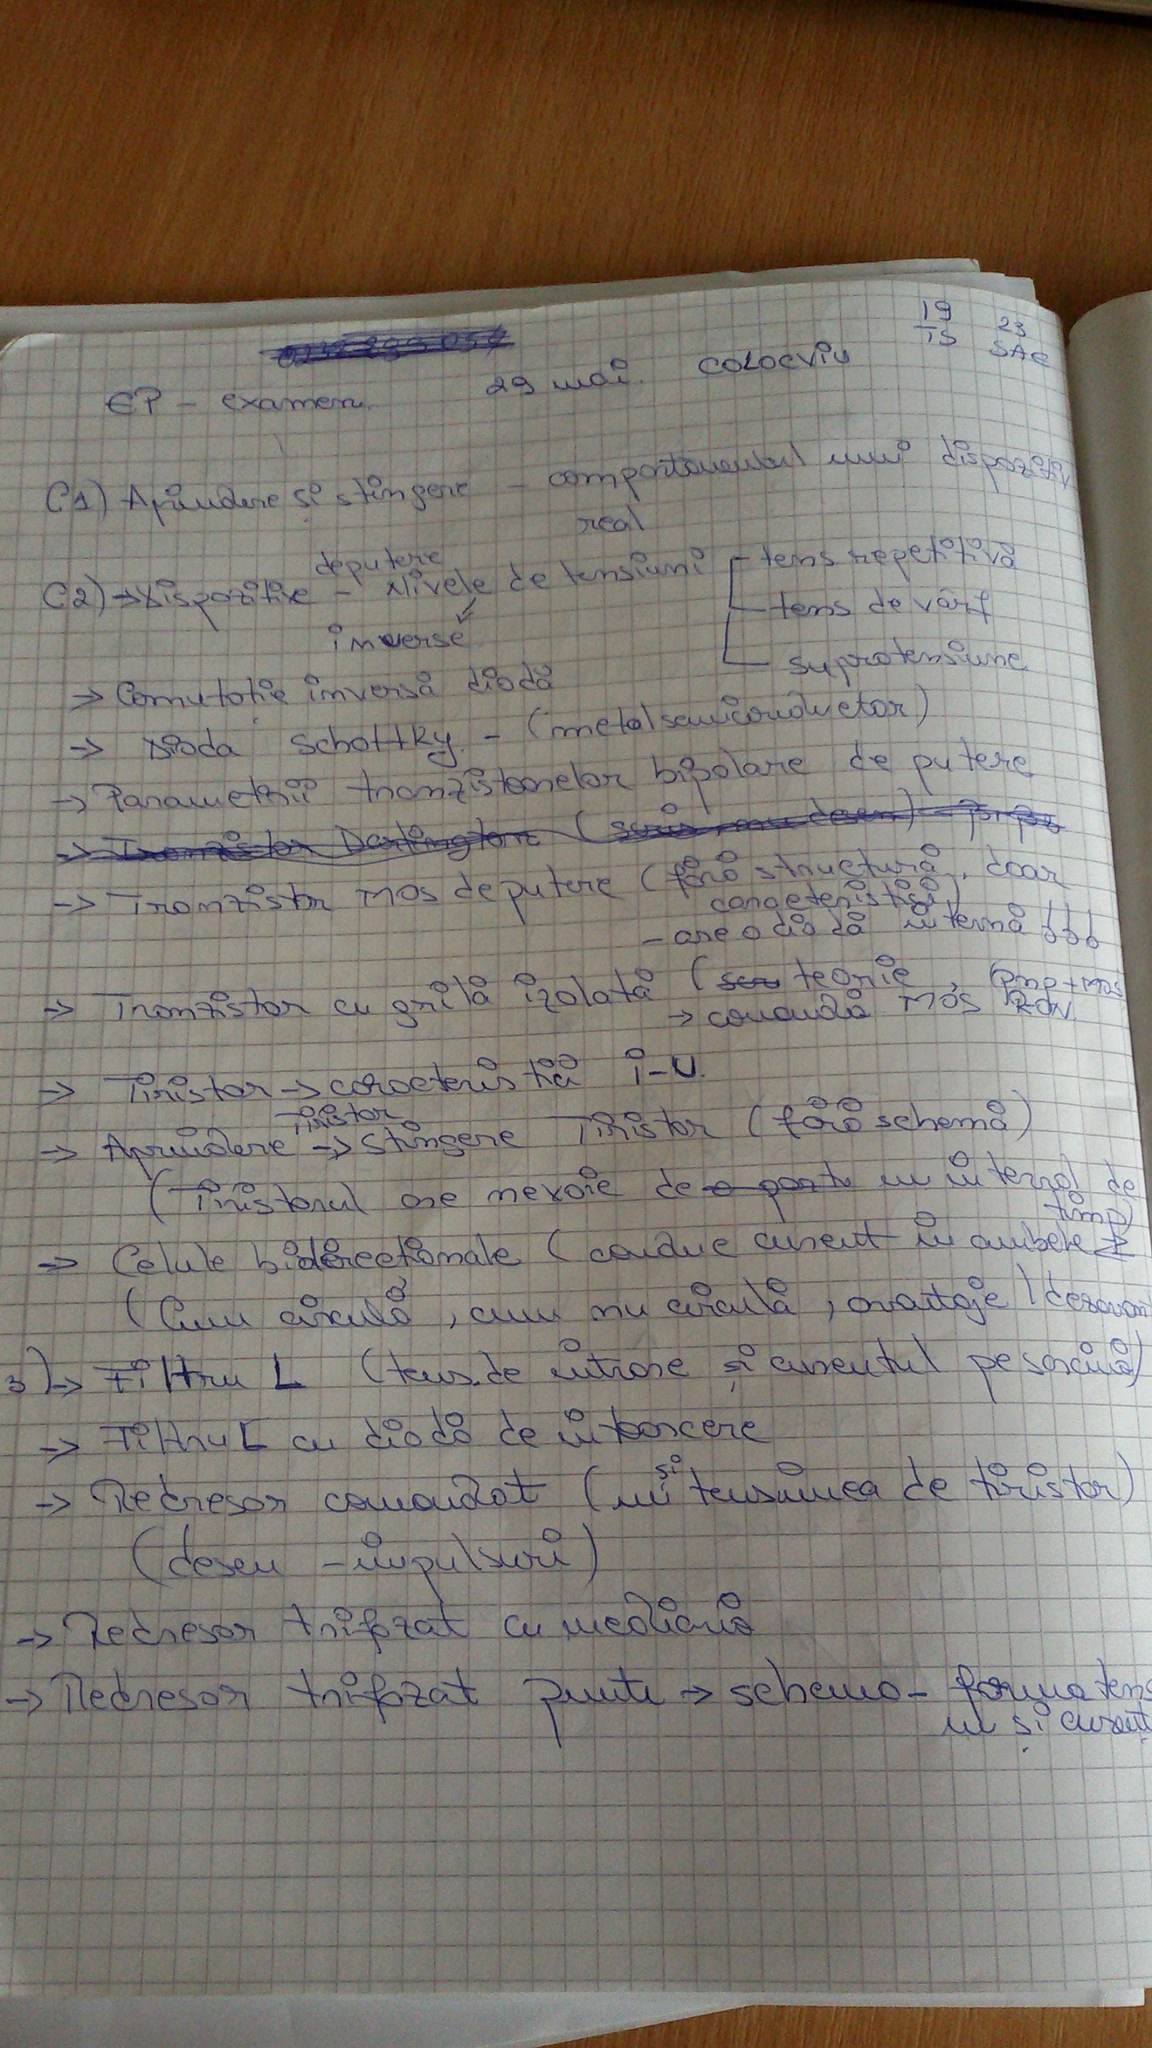 19 23
TS SAC
EP - examen. 29 mai. COLOCVIU
C1) Aprindere și stingere - comportamentul unui dispozitiv
real
de putere
C2) → Dispozitive - Nivele de tensiuni - tens repetitivă
inverse - tens de vârf
- supratensiune
→ Comutatie inversă diodă
→ Dioda Schottky. - (metalsemiconductor)
→ Parametrii tranzistoarelor bipolare de putere
→ Tranzistor Darlington (scris, nu desen) -
→ Tranzistor MOS de putere (fără structură, doar
caracteristici)
- are o diodă internă !!!
→ Tranzistor cu grilă izolată (teorie, (pnp+MOS
→ comandă MOS
→ Tiristor → caracteristică i-u.
tiristor
→ Aprindere → Stingere Tiristor (fără schemă)
(Tiristorul are nevoie de un interval de
timp)
→ Celule bidirectionale (conduc curent în ambele
(Cum circulă, cum nu circulă, avantaje / dezavant
3) → Filtru L (tens. de intrare și curentul pe sarcină)
→ Filtru L cu diodă de întoarcere
→ Redresor comandat (și tensiunea de tiristor)
(desen - impulsuri)
→ Redresor trifazat cu mediană
→ Redresor trifazat punte → schema - forma tens
și curent